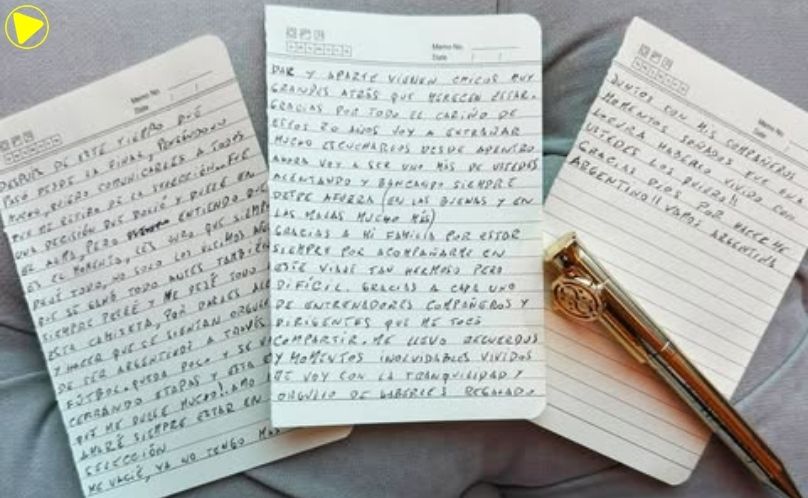 Memo No.
Date
DESPUES DE ESTE TIEMPO QUE
PASO DESDE LA FINAL, PENSÁNDOLO
MUCHO, QUIERO COMUNICARLES A TODOS
QUE ME RETIRO DE LA SELECCIÓN. FUE
UNA DECISIÓN QUE DOLIÓ Y DUELE EN
EL ALMA, PERO ENTIENDO QUE
ES EL MOMENTO, LES JURO QUE SIEMPRE
DEJÉ TODO, NO SOLO LOS ULTIMOS
QUE SE GANÓ TODO ANTES TAMBIÉN
SIEMPRE PELEÉ Y ME DEJÉ TODO
ESTA CAMISETA, POR DARLES
Y HACER QUE SE SIENTAN
DE SER ARGENTINOS A TRAVÉS
FÚTBOL. QUEDA POCO Y SE
CERRANDO ETAPAS Y ESTA
QUE ME DUELE MUCHO! AMO
AMARÉ SIEMPRE ESTAR EN
SELECCIÓN
ME VACIÉ, YA NO TENGO MÁS
Memo No.
Date
DAR Y APARTE VIENEN CHICOS MUY
GRANDES ATRÁS QUE MERECEN ESTAR.
GRACIAS POR TODO EL CARIÑO DE
ESTOS 20 AÑOS VOY A EXTRAÑAR
MUCHO ESCUCHARLOS DESDE ADENTRO
AHORA VOY A SER UNO MÁS DE USTEDES
ALENTANDO Y BANCANDO SIEMPRE
DESDE AFUERA (EN LAS BUENAS Y EN
LAS MALAS MUCHO MÁS)
GRACIAS A MI FAMILIA POR ESTAR
SIEMPRE POR ACOMPAÑARME EN
ESTE VIAJE TAN HERMOSO PERO
DIFÍCIL. GRACIAS A CADA UNO
DE ENTRENADORES COMPAÑEROS Y
DIRIGENTES QUE ME TOCÓ
COMPARTIR. ME LLEVO RECUERDOS
Y MOMENTOS INOLVIDABLES VIVIDOS
ME VOY CON LA TRANQUILIDAD Y
ORGULLO DE HABERLES REGALADO
Memo No.
Date
JUNTOS CON MIS COMPAÑEROS
MOMENTOS SOÑADOS FUE UNA
LOCURA HABERLO VIVIDO CON
USTEDES LOS QUIERO!!
GRACIAS DIOS POR HACERME
ARGENTINO!! VAMOS ARGENTINA